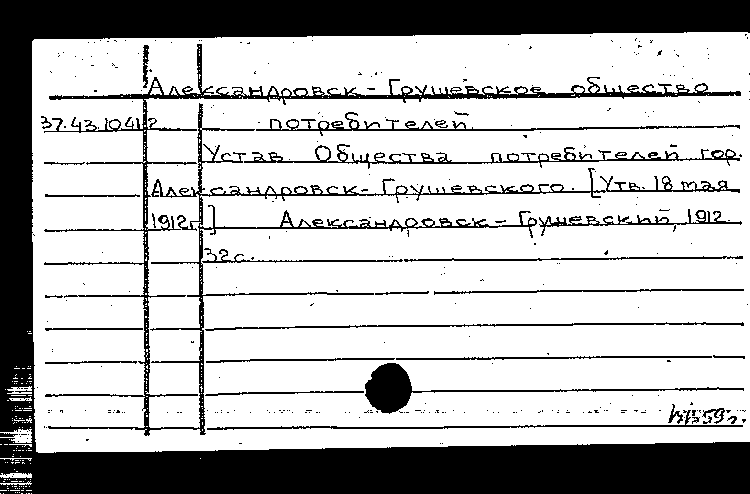 Александровск-Грушевское общество
37.43.1041.2 потребителей.
Устав Общества потребителей гор.
Александровск-Грушевского. [Утв. 18 мая
1912г.] Александровск-Грушевский, 1912.
32с.
59г.